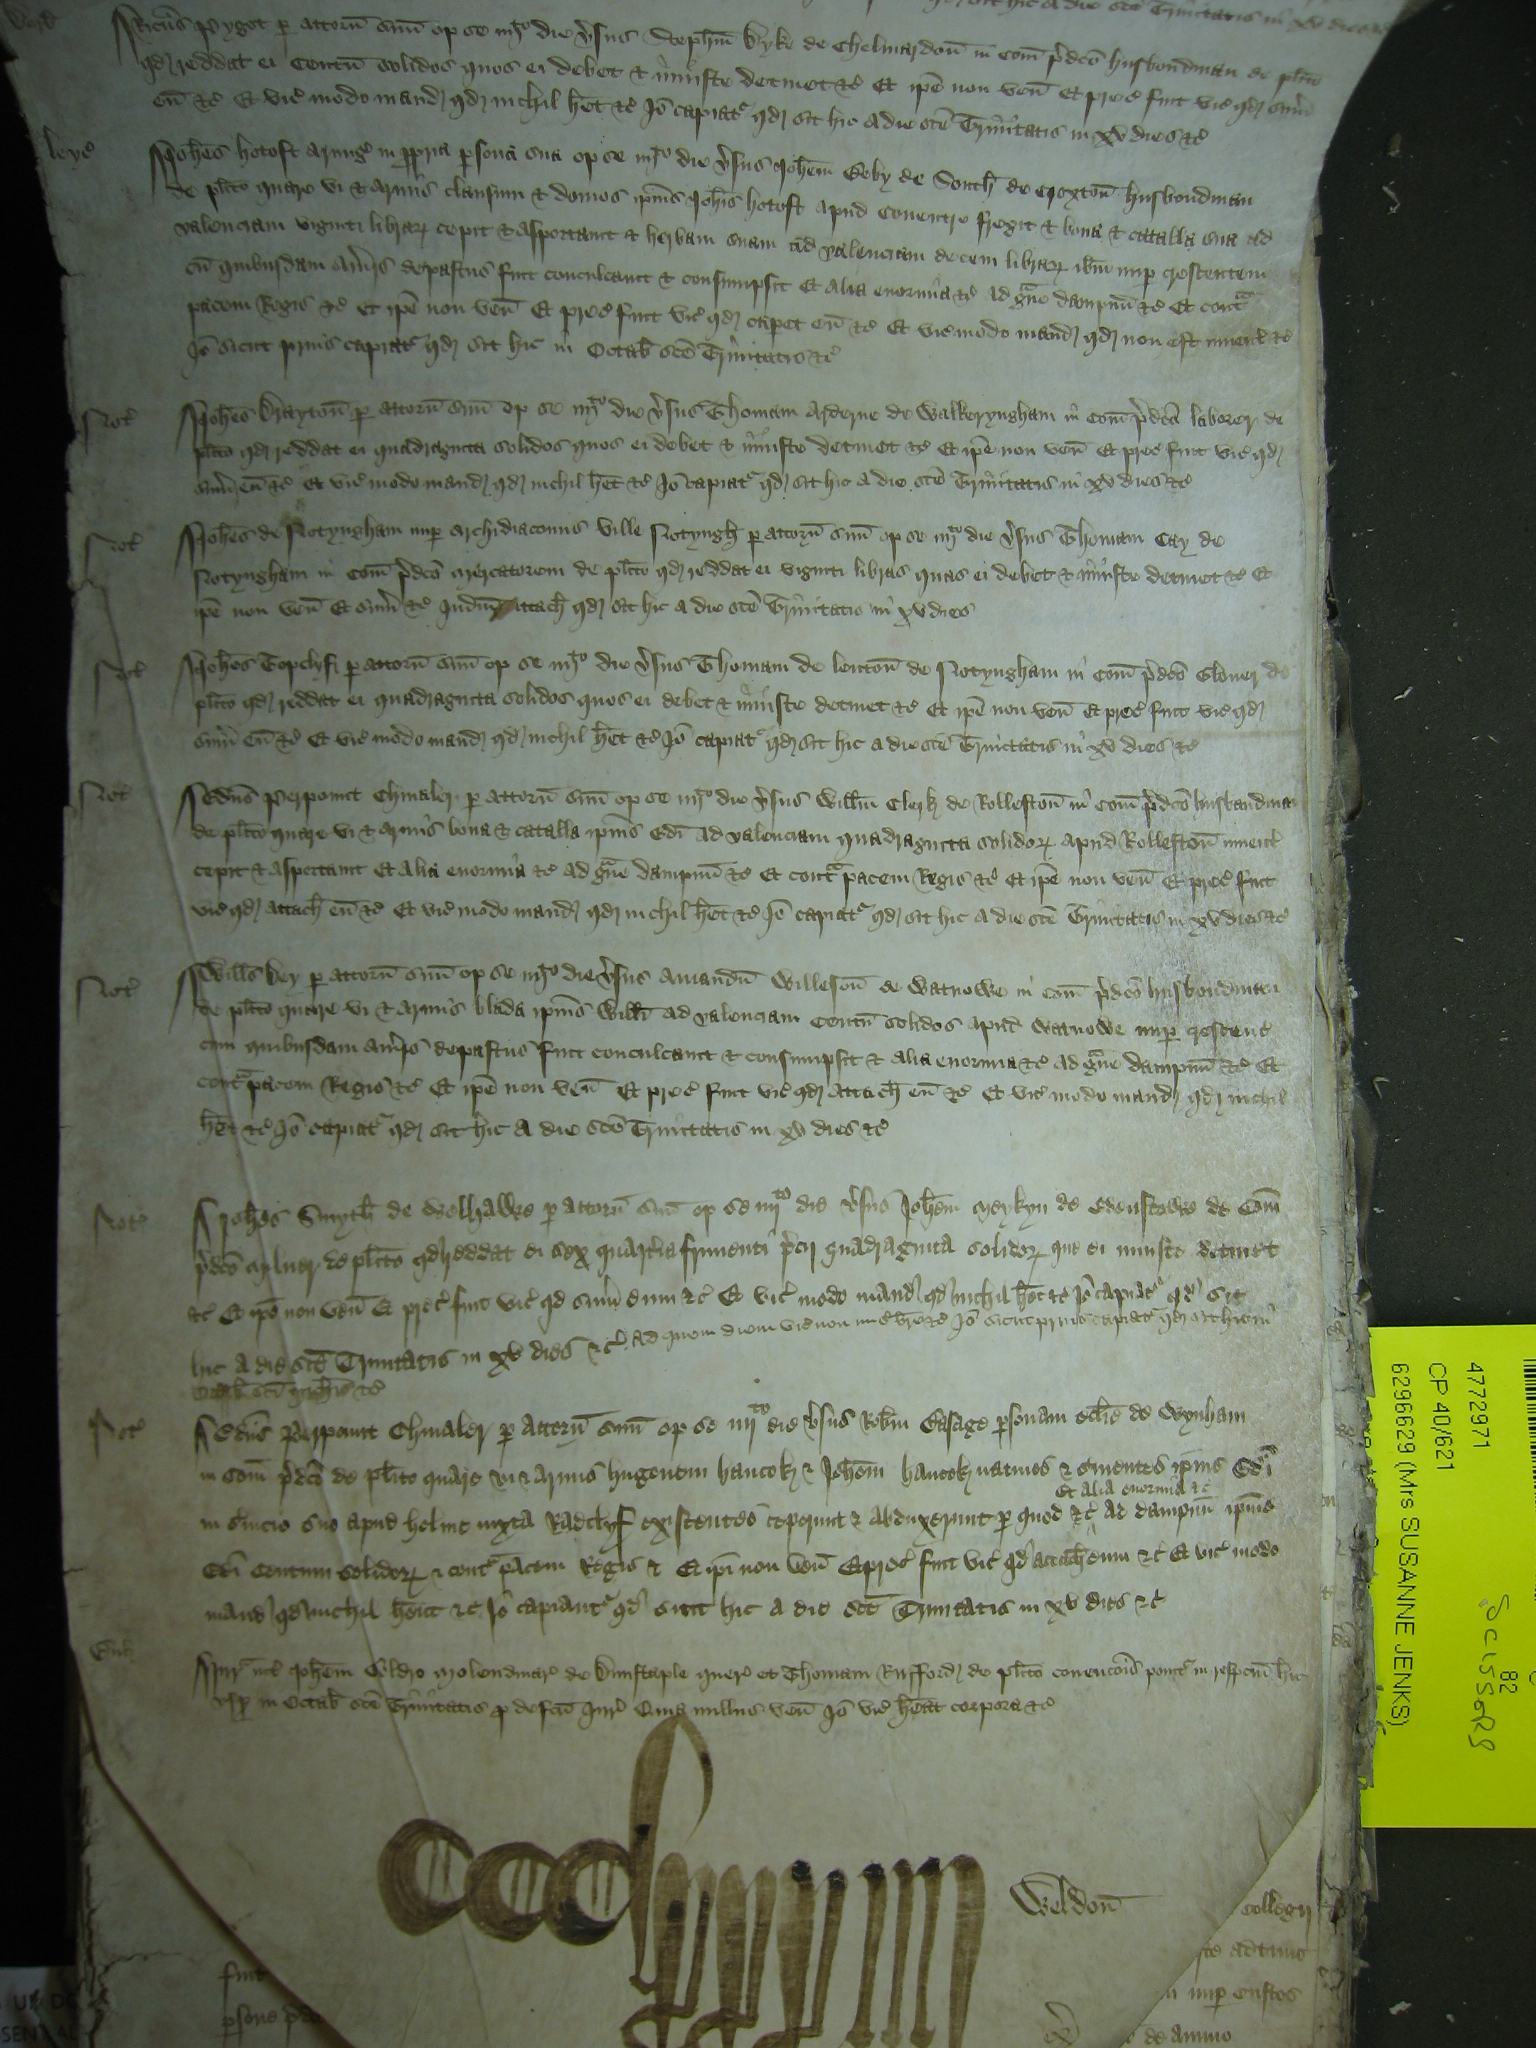 sit hic a die sce Trinitatis in xv dies
Derb
Ricus Pygot p attorn suu op se iiijto die vsus Stephm Dyke de Chelmardon in Com pdco husbondman de plito
qd reddat ei Centu solidos quos ei debet & iniuste detinet &c Et ipe non ven Et prec fuit vic qd sum
eu &c Et vic modo mand qd nichil het &c Io capiat qd sit hic a die sce Trinitatis in xv dies &c
leyc
Johes hotoft Armig in ppria psona sua op se iiijto die vsus Johem Seby de South de Croxton husbondman
de plito quare vi & armis clausum & domos ipius Johis hotoft apud Coventre fregit & bona & catalla sua ad
valenciam viginti librar cepit & asportavit & herbam suam ad valenciam decem librar ibm nup crescentem
cu quibusdam Aueriis depastus fuit conculcauit & consumpsit Et alia enormia &c Ad graue dampnu &c Et contra
pacem Regis &c Et ipe non ven Et prec fuit vic qd caperet eu &c Et vic modo mand qd non est inuent &c
Io sicut prius capiat qd sit hic in Octab sce Trinitatis &c
Not
Johes Drayton p attorn suu op se iiijto die vsus Thomam Arderne de Walkeryngham in Com pdco laborer de
plito qd reddat ei quadraginta solidos quos ei debet & iniuste detinet &c Et ipe non ven Et prec fuit vic qd
sum eu &c Et vic modo mand qd nichil het &c Io capiat qd sit hic a die sce Trinitatis in xv dies &c
Not
Johes de Notyngham nup Archidiaconus ville Notyngh p attorn suu op se iiijto die vsus Thomam Cay de
Notyngham in Com pdco Mercatorem de plito qd reddat ei viginti libras quas ei debet & iniuste detinet &c Et
ipe non ven Et sum &c Judm attach qd sit hic a die sce Trinitatis in xv dies
Not
Johes Topclyf p attorn suu op se iiijto die vsus Thomam de lenton de Notyngham in Com pdco Glouer de
plito qd reddat ei quadraginta solidos quos ei debet & iniuste detinet &c Et ipe non ven Et prec fuit vic qd
sum eu &c Et vic modo mand qd nichil het &c Io capiat qd sit hic a die sce Trinitatis in xv dies &c
Not
Edus Perpoint Chiualer p attorn suu op se iiijto die vsus Willm Clerk de Rolleston in Com pdco husbandman
de plito quare vi & armis bona & catalla ipius Edi ad valenciam quadraginta solidor apud Rolleston inuent
cepit & asportauit Et alia enormia &c ad graue dampnu &c Et contra pacem Regis &c Et ipe non ven Et prec fuit
vic qd attach eu &c Et vic modo mand qd nichil het &c Io capiat qd sit hic a die sce Trinitatis in xv dies &c
Not
Wills Dey p attorn suu op se iiijto die vsus Amandu Willeson de Watnowe in Com pdco husbondman
de plito quare vi & armis blada ipius Willi ad valenciam Centu solidos apud Watnowe nup crescent
cum quibusdam Aueriis depastus fuit conculcauit & consumpsit & alia enormia &c ad graue dampnu &c Et
contra pacem Regis &c Et ipe non ven Et prec fuit vic qd attach eu &c Et vic modo mand qd nichil
het &c Io capiat qd sit hic a die sce Trinitatis in xv dies &c
Not
Johes Smyth de Welhawe p attorn suu op se iiijto die vsus Johem Meykyn de Edenstowe de Com
pdco de plito qd reddat ei sex quarteria frumenti pcii quadraginta solidor que ei iniuste detinet
&c Et ipe non ven Et prec fuit vic qd sum eum &c Et vic modo mand qd nichil het &c Io capiat qd sit
hic a die sce Trinitatis in xv dies &c Ad quem diem vic non mis bre &c Io sicut prius capiat qd sit hic in
Octab sci Michis &c
Not
Edus Perpoint Chiualer p attorn suu op se iiijto die vsus Robm Casage psonam ecclie de Wynham
in Com pdco de plito quare vi & armis hugonem hancok & Johem hancok natiuos & seruientes ipius Edi
Et alia enormia &c
in seruicio suo apud holme iuxta Radclyf existentes ceperunt & abduxerunt p quod &c Ad dampnu ipius
Edi Centum solidor & contra pacem Regis & Et ipi non ven Et prec fuit vic qd attach eum &c Et vic modo
mand qd nichil hent &c Io capiant qd sint hic a die sce Trinitatis in xv dies &c
Jur int Johem molendinar de Dunstaple quer et Thomam Rufford de plito convencois ponit in respcm hic
usq in Octab sce Trinitatis p defcu Jur Quia nullus ven Io vic heat corpora &c
Weldon
Collegii
nup Custos
de anno
fuit
psone
4772971
CP 40/621
6296629 (Mrs SUSANNE JENKS)
82
SCISSORS